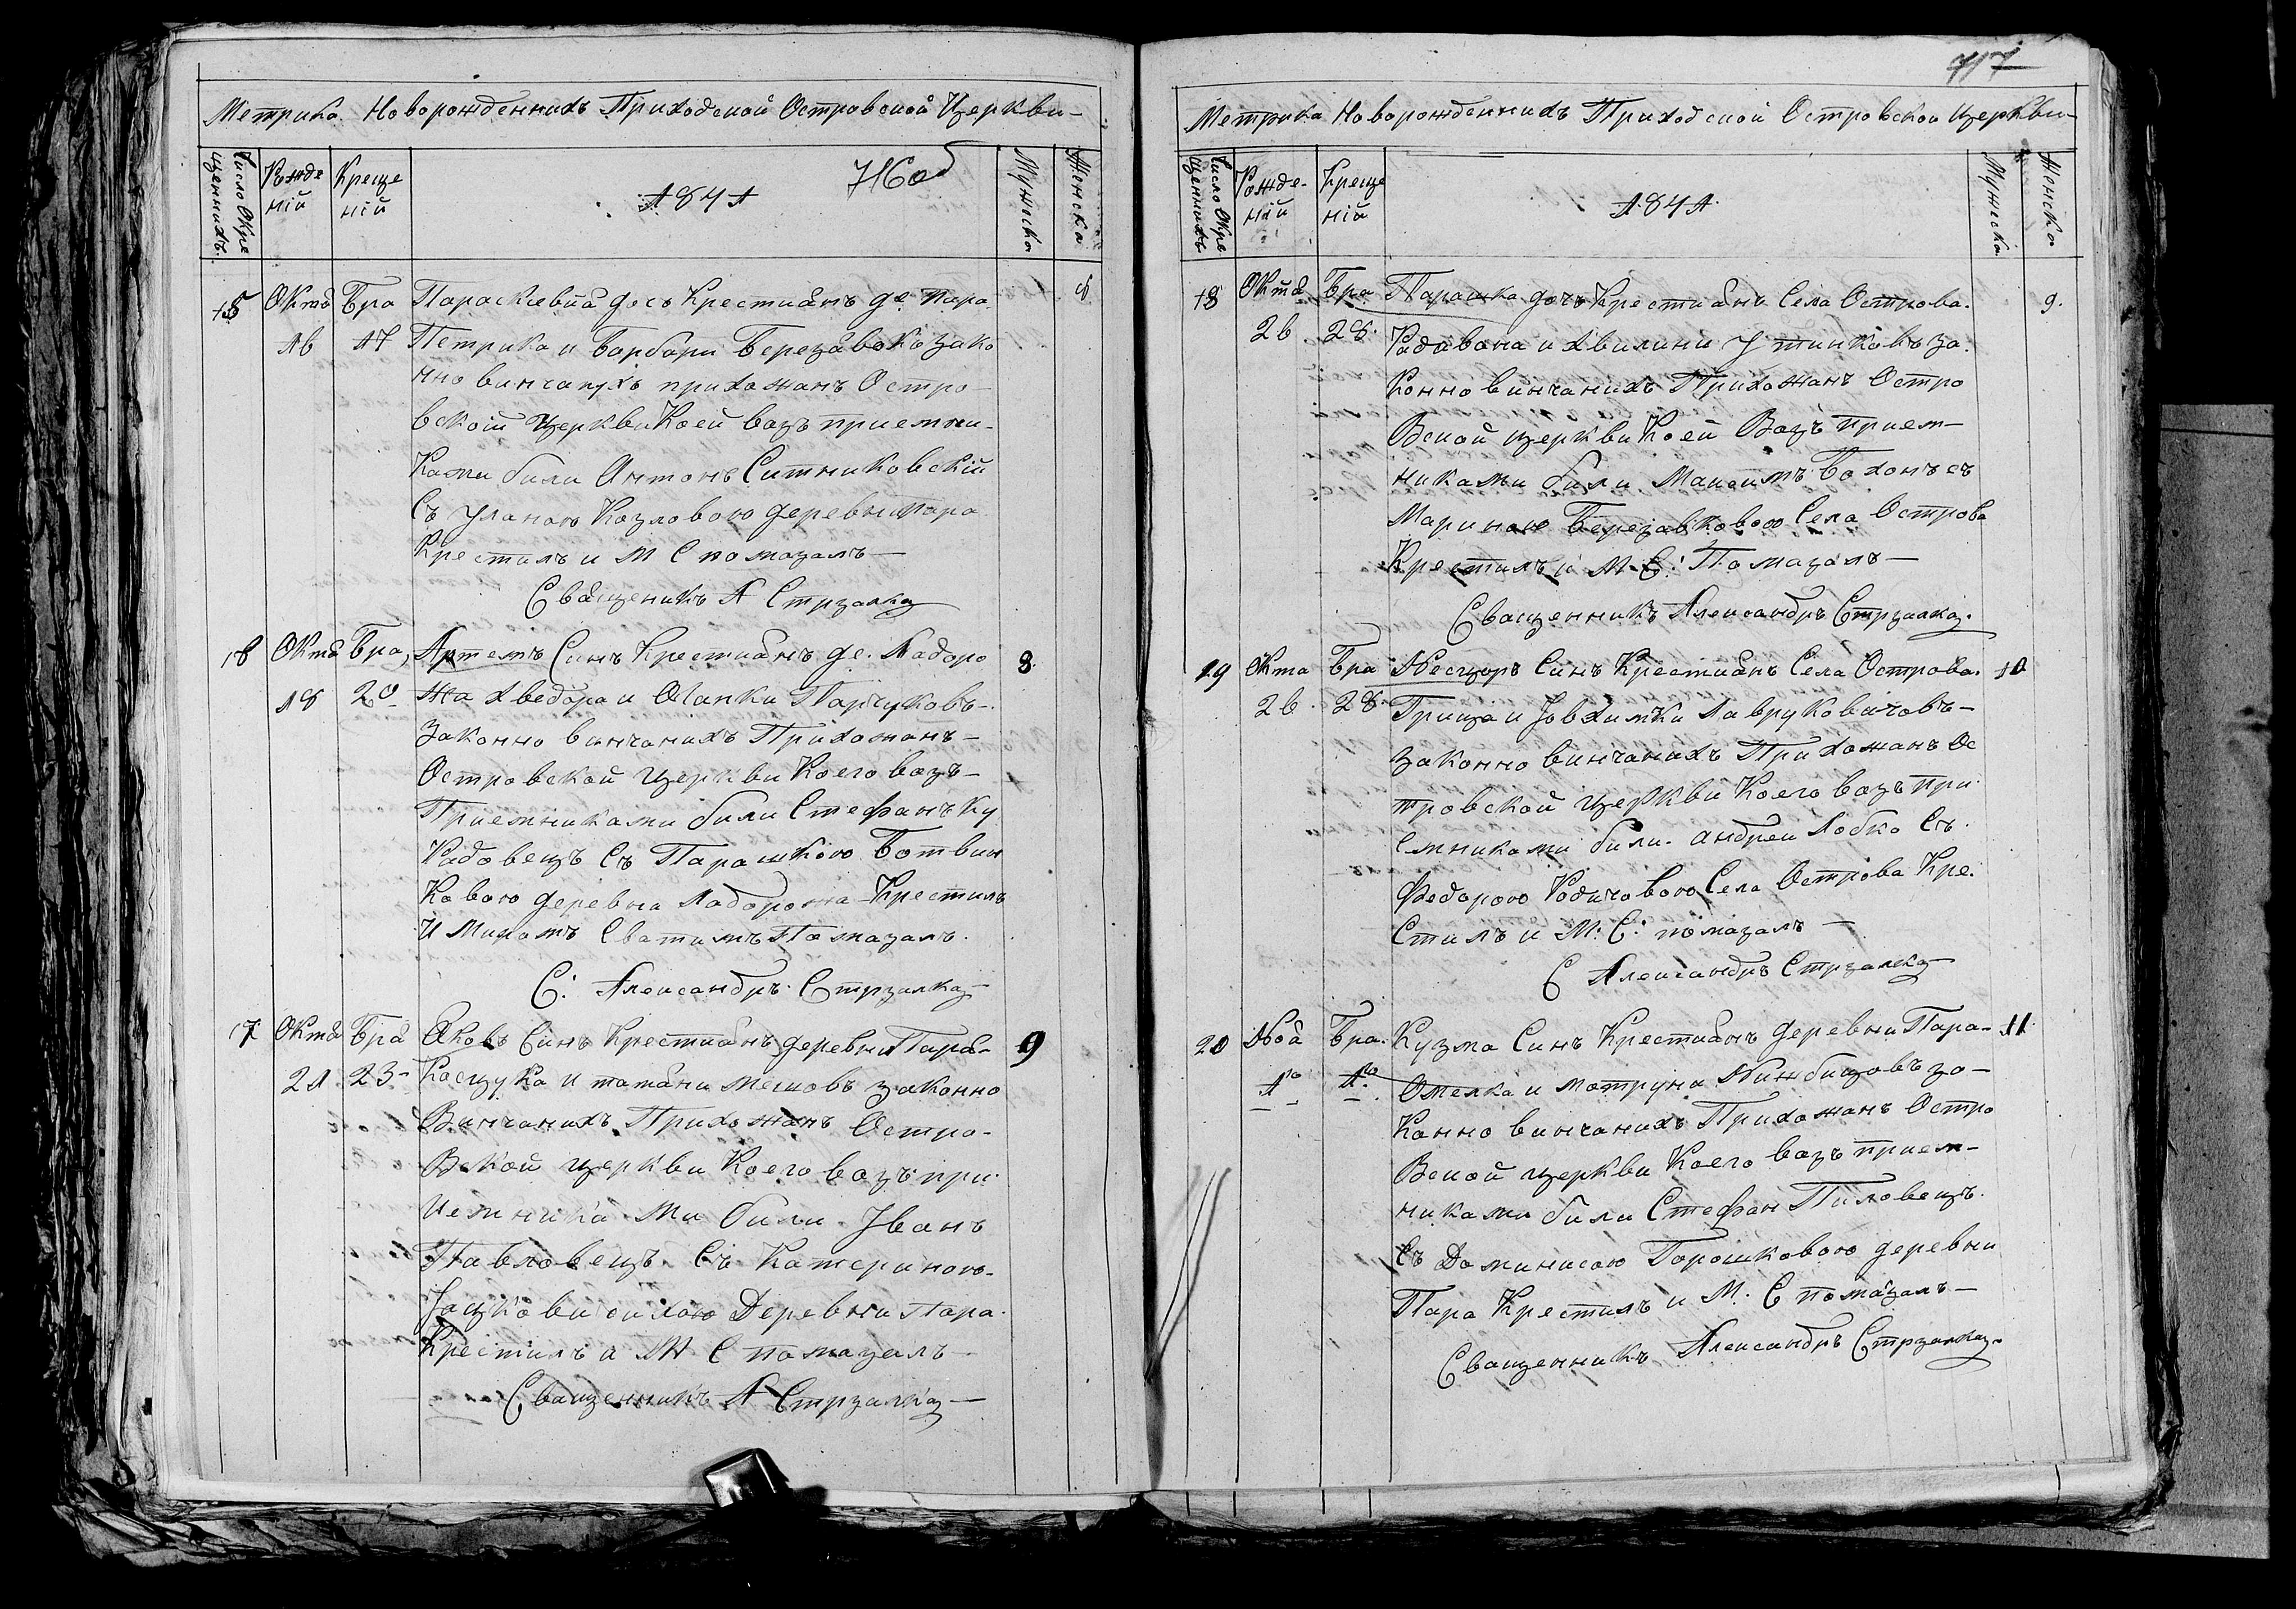 Метрика Новорожденнихъ Приходской Островской Церкви
Число Окре щеннихъ
Рожде ній
Креще ній
1841
716 об
Мужеска
Женска
15 Октя Бра Параскевия дочь Крестиянъ де. Пара
8
16 17 Петрика и Варбари Березавока зако
нно винчанихъ прихожанъ Остро
вской Церкви Коей вазъ приемни-
Ками били Антонъ Ситниковскій
Съ Уланою Козловою деревни Пара
Крестилъ и М С помазалъ
Священикъ А Стрзалка
16 Октя Бра Артемъ Синъ Крестиянъ де. Ладоро 8
18 20 жа Хведора и Олапки Парчуковъ
Законно винчанихъ Прихожанъ
Островской Церкви Коего вазъ
Приемниками били Стефанъ Ку
Радовецъ Съ Парашкою Ботвин
Ковою деревни Ладорожа Крестилъ
И Миромъ Святимъ Помазалъ.
С: Александръ Стрзалка
17 Октя Бра Яковъ Синъ Крестиянъ деревни Пара 9
21 23 Касцука и татяни Мешовъ законно
Винчанихъ Прихожанъ Остро-
Вской Церкви Коего вазъ при
Иемника ми били Иванъ
Павловецъ Съ Катериною
деревни Пара
Крестилъ и М С помазалъ
Священникъ А Стрзалка
717
Метрика Новорожденнихъ Приходской Островской Церкви
Число Окре щеннихъ
Рожде- ній
Креще ній
1841
Мужеска
Женска
18 Октя Бра Парашка дочь Крестиянъ Села Острова. 9.
26 28 Радавана и Авилини Утинковъ за.
Конно винчанихъ Прихожанъ Остро
Вской церкви Коей Вазъ прием-
никами били Максимъ Боханъ съ
Мариною Березавковою Села Острова
Крестилъ и М. С: Помазалъ
Священникъ Александръ Стрзалка.
19 Окта Бра Несцоръ Синъ Крестиянъ Села Острова. 10
26 28 Грица и Јовхимки Лавруковичовъ
Законно винчанихъ Прихожанъ Ос
тровской церкви Коего вазъ при
Емниками били Андреи Лобко Съ
Федорою Радичовою Села Острова Кре.
Стилъ и М. С: помазалъ
С Александръ Стрзалка
20 Ноя Бра. Кузма Синъ Крестиянъ деревни Пара- 11
1го 1го Омелка и мотруни за-
Конно винчанихъ Прихожанъ Остро
Вской церкви Коего вазъ прием-
никами били Стефан Пиловецъ
Съ Доминисою Горошковою деревни
Пара Крестилъ и М. С помазалъ
Священникъ Александръ Стрзалка